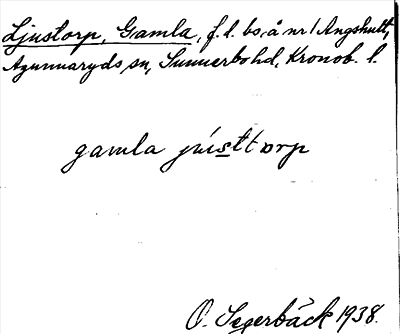 Ljustorp, Gamla, f.d. bs, å nr 1 Ängshult,
Agunnaryds sn, Sunnerbo hd, Kronob. l.
gamla júisttorp
O. Segerbäck 1938.